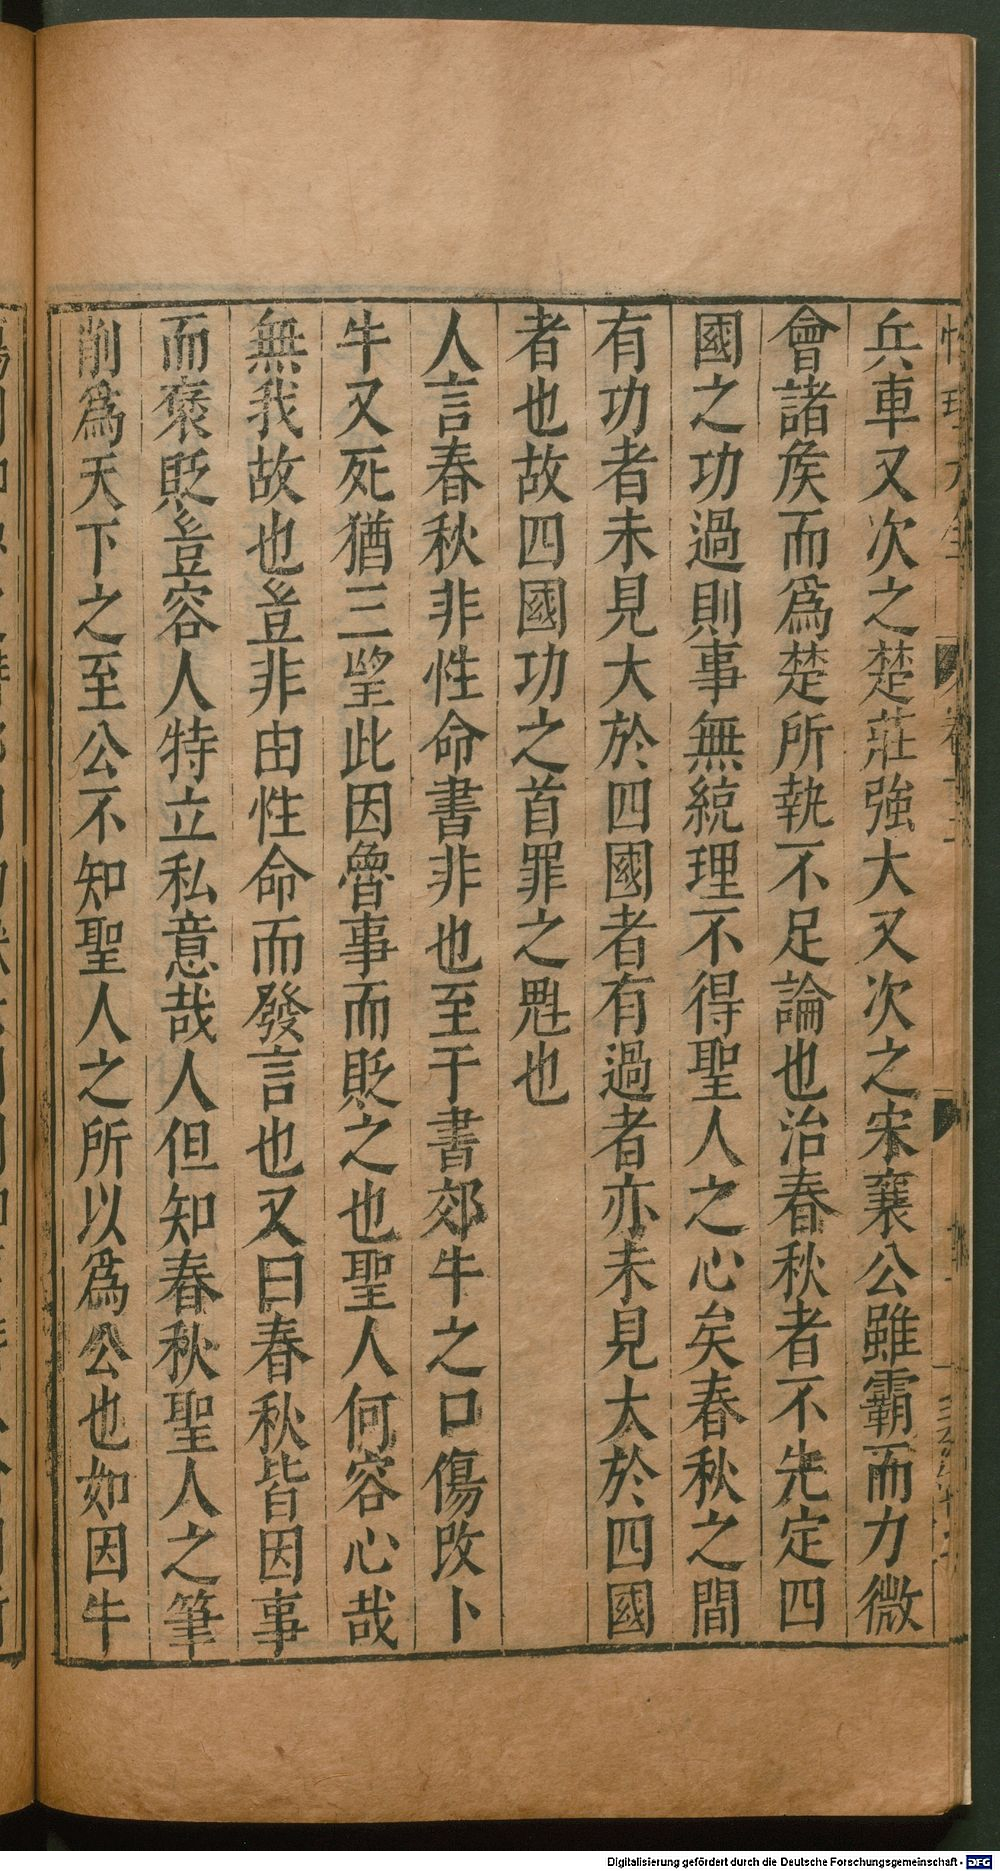 兵車又次之楚莊強大又次之宋襄公雖霸而力微
會諸矦而爲楚所執不足論也治春秋者不先定四
國之功過則事無統理不得聖人之心矣春秋之間
有功者未見大於四國者有過者亦未見大於四國
者也故四國功之首罪之魁也
人言春秋非性命書非也至于書郊牛之口傷改卜
牛又死猶三望此因魯事而貶之也聖人何容心哉
無我故也豈非由性命而發言也又曰春秋皆因事
而褒貶豈容人特立私意哉人但知春秋聖人之筆
削爲天下之至公不知聖人之所以爲公也如因牛
Digitalisierung gefördert durch die Deutsche Forschungsgemeinschaft - DFG